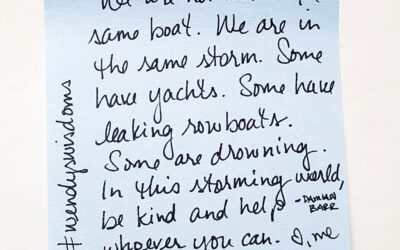 we are not
same boat. We are in
the same storm. Some
have yachts. Some have
leaking rowboats.
Some are drowning.
In this storming world,
be kind and help
-DAMIAN
BARR
whoever you can. I, me
#wendyswisdoms